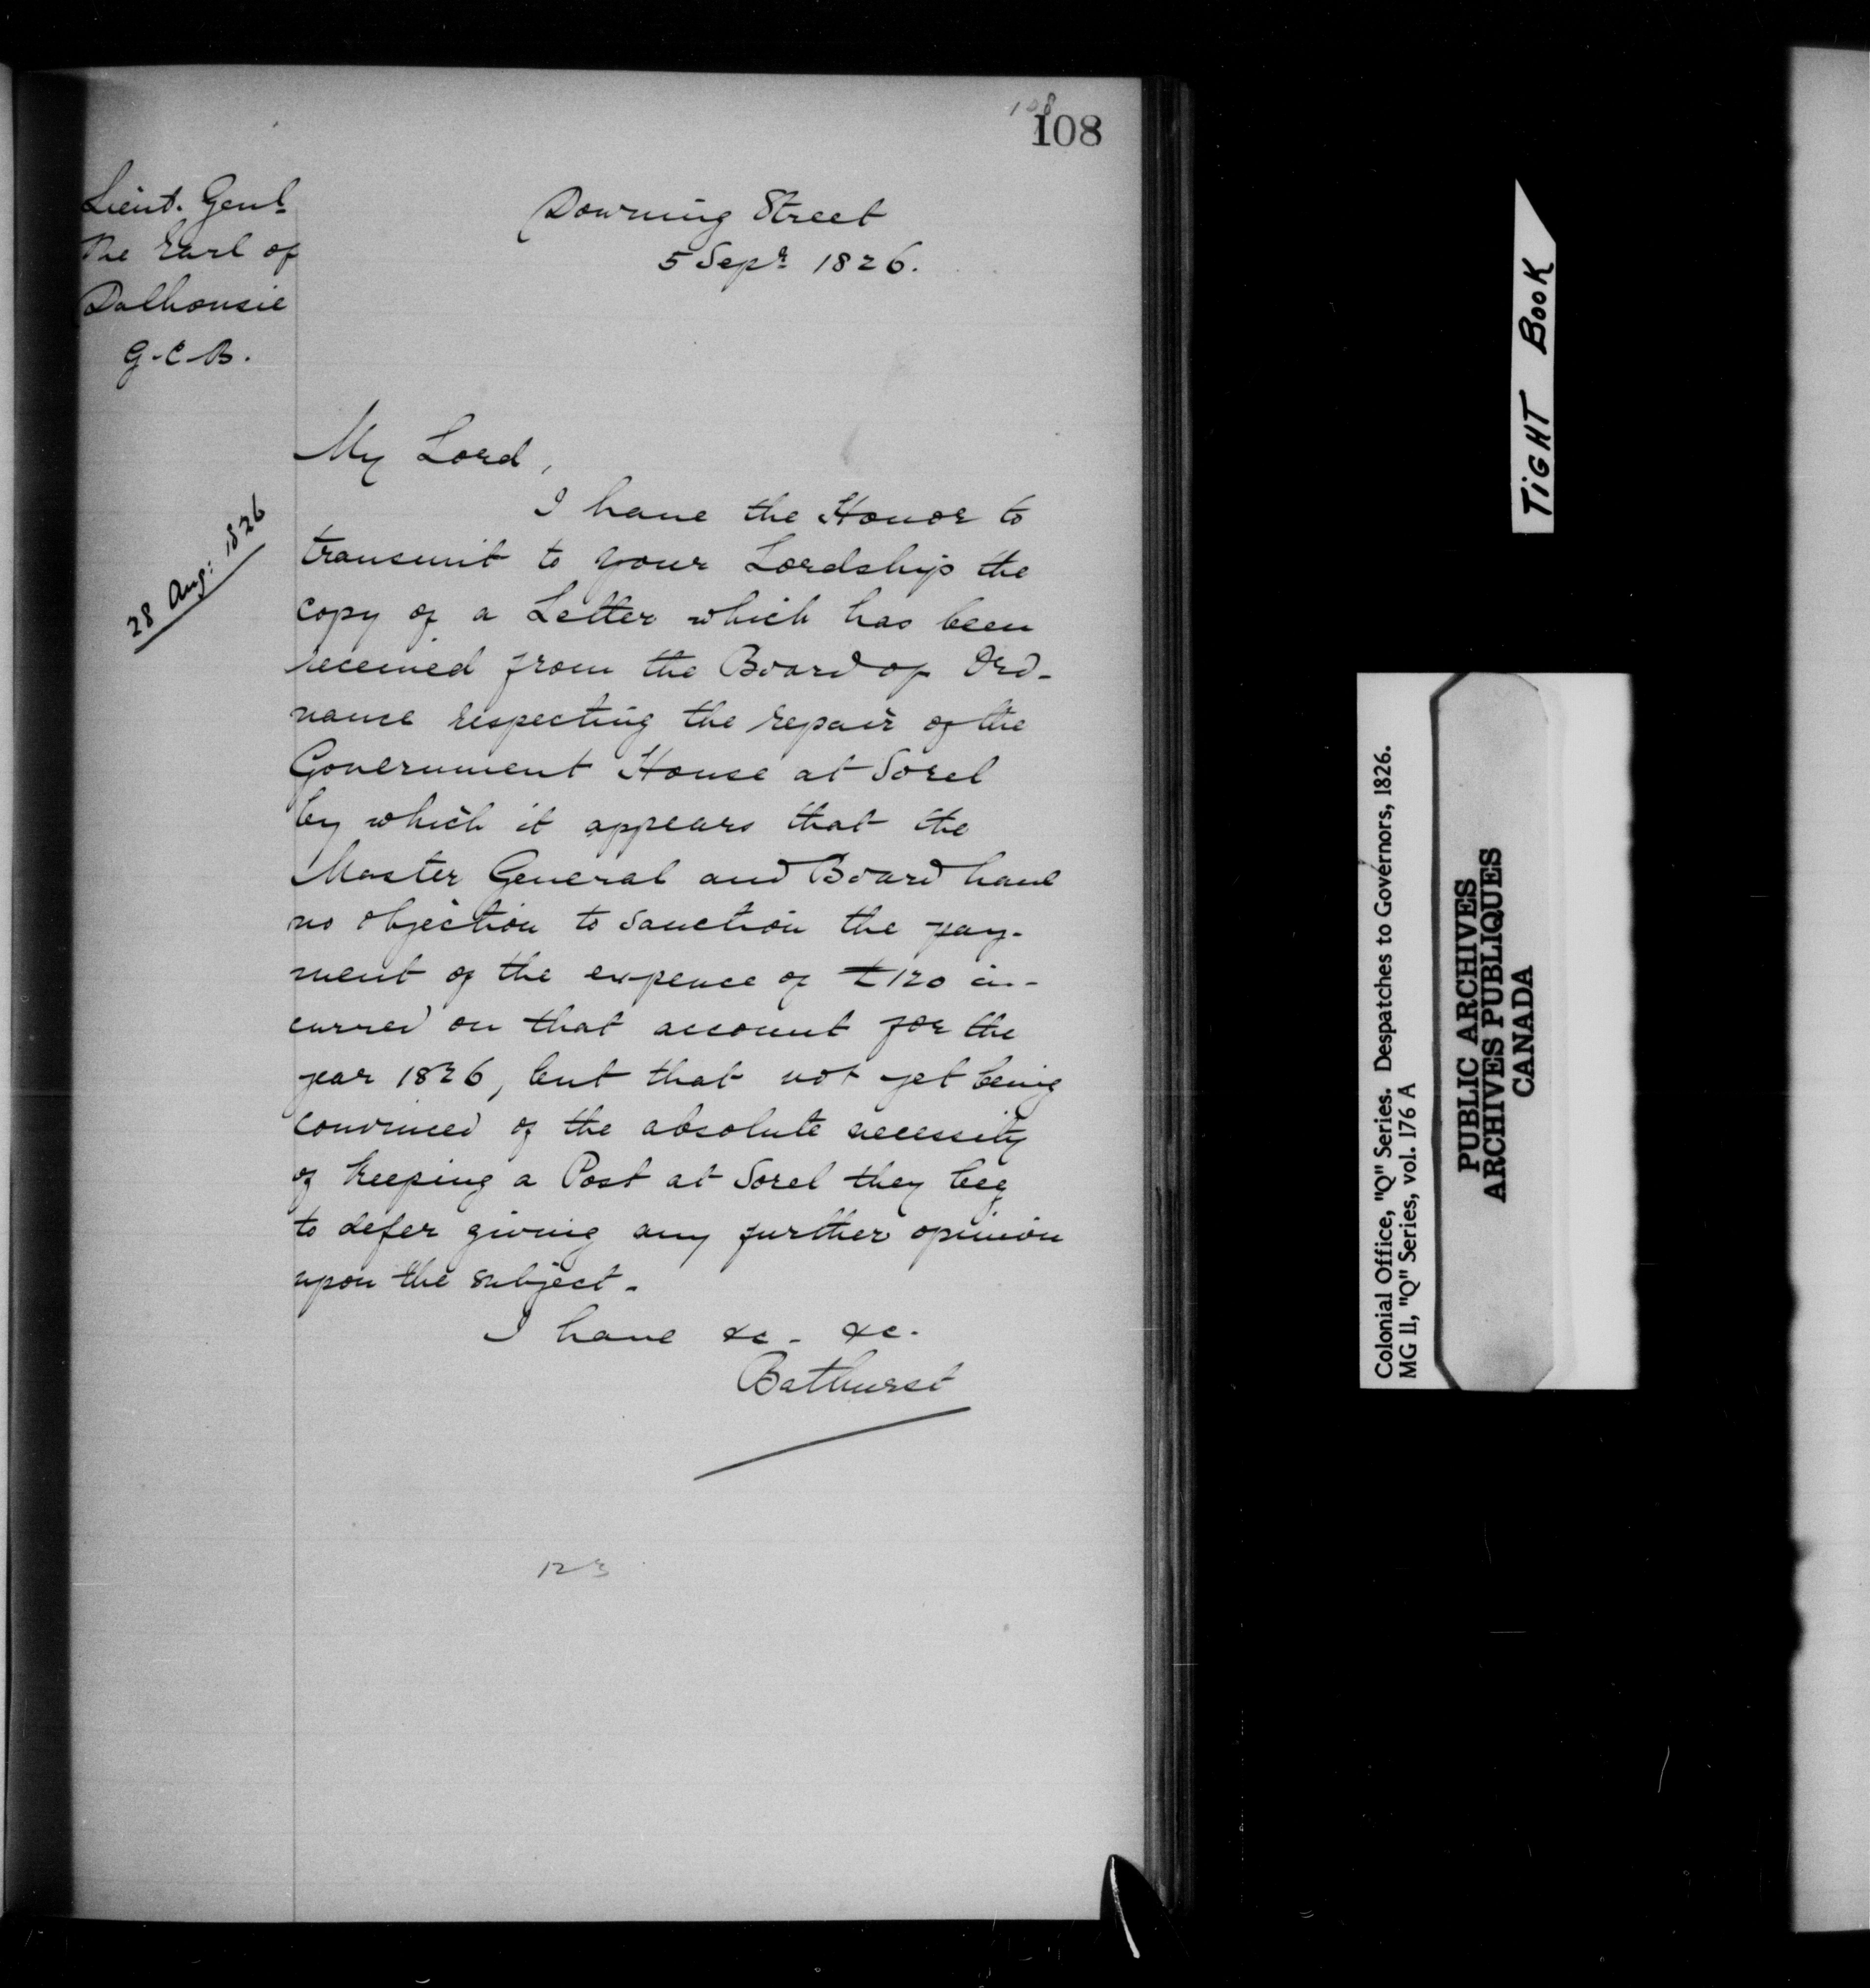 108
108
Lieut. Genl.
The Earl of
Dalhousie
G.C.B.
Downing Street
5 Sepr. 1826.
My Lord,
28 Aug: 1826
I have the Honor to
transmit to your Lordship the
copy of a Letter which has been
received from the Board of Ord-
nance respecting the repair of the
Government House at Sorel
by which it appears that the
Master General and Board have
no objection to sanction the pay-
ment of the expence of £120 in-
curred on that account for the
year 1826, but that not yet being
convinced of the absolute necessity
of keeping a Post at Sorel they beg
to defer giving any further opinion
upon the subject.
I have &c. &c.
Bathurst
123
TIGHT BOOK
Colonial Office, "Q" Series. Despatches to Governors, 1826.
MG 11, "Q" Series, vol. 176 A
PUBLIC ARCHIVES
ARCHIVES PUBLIQUES
CANADA